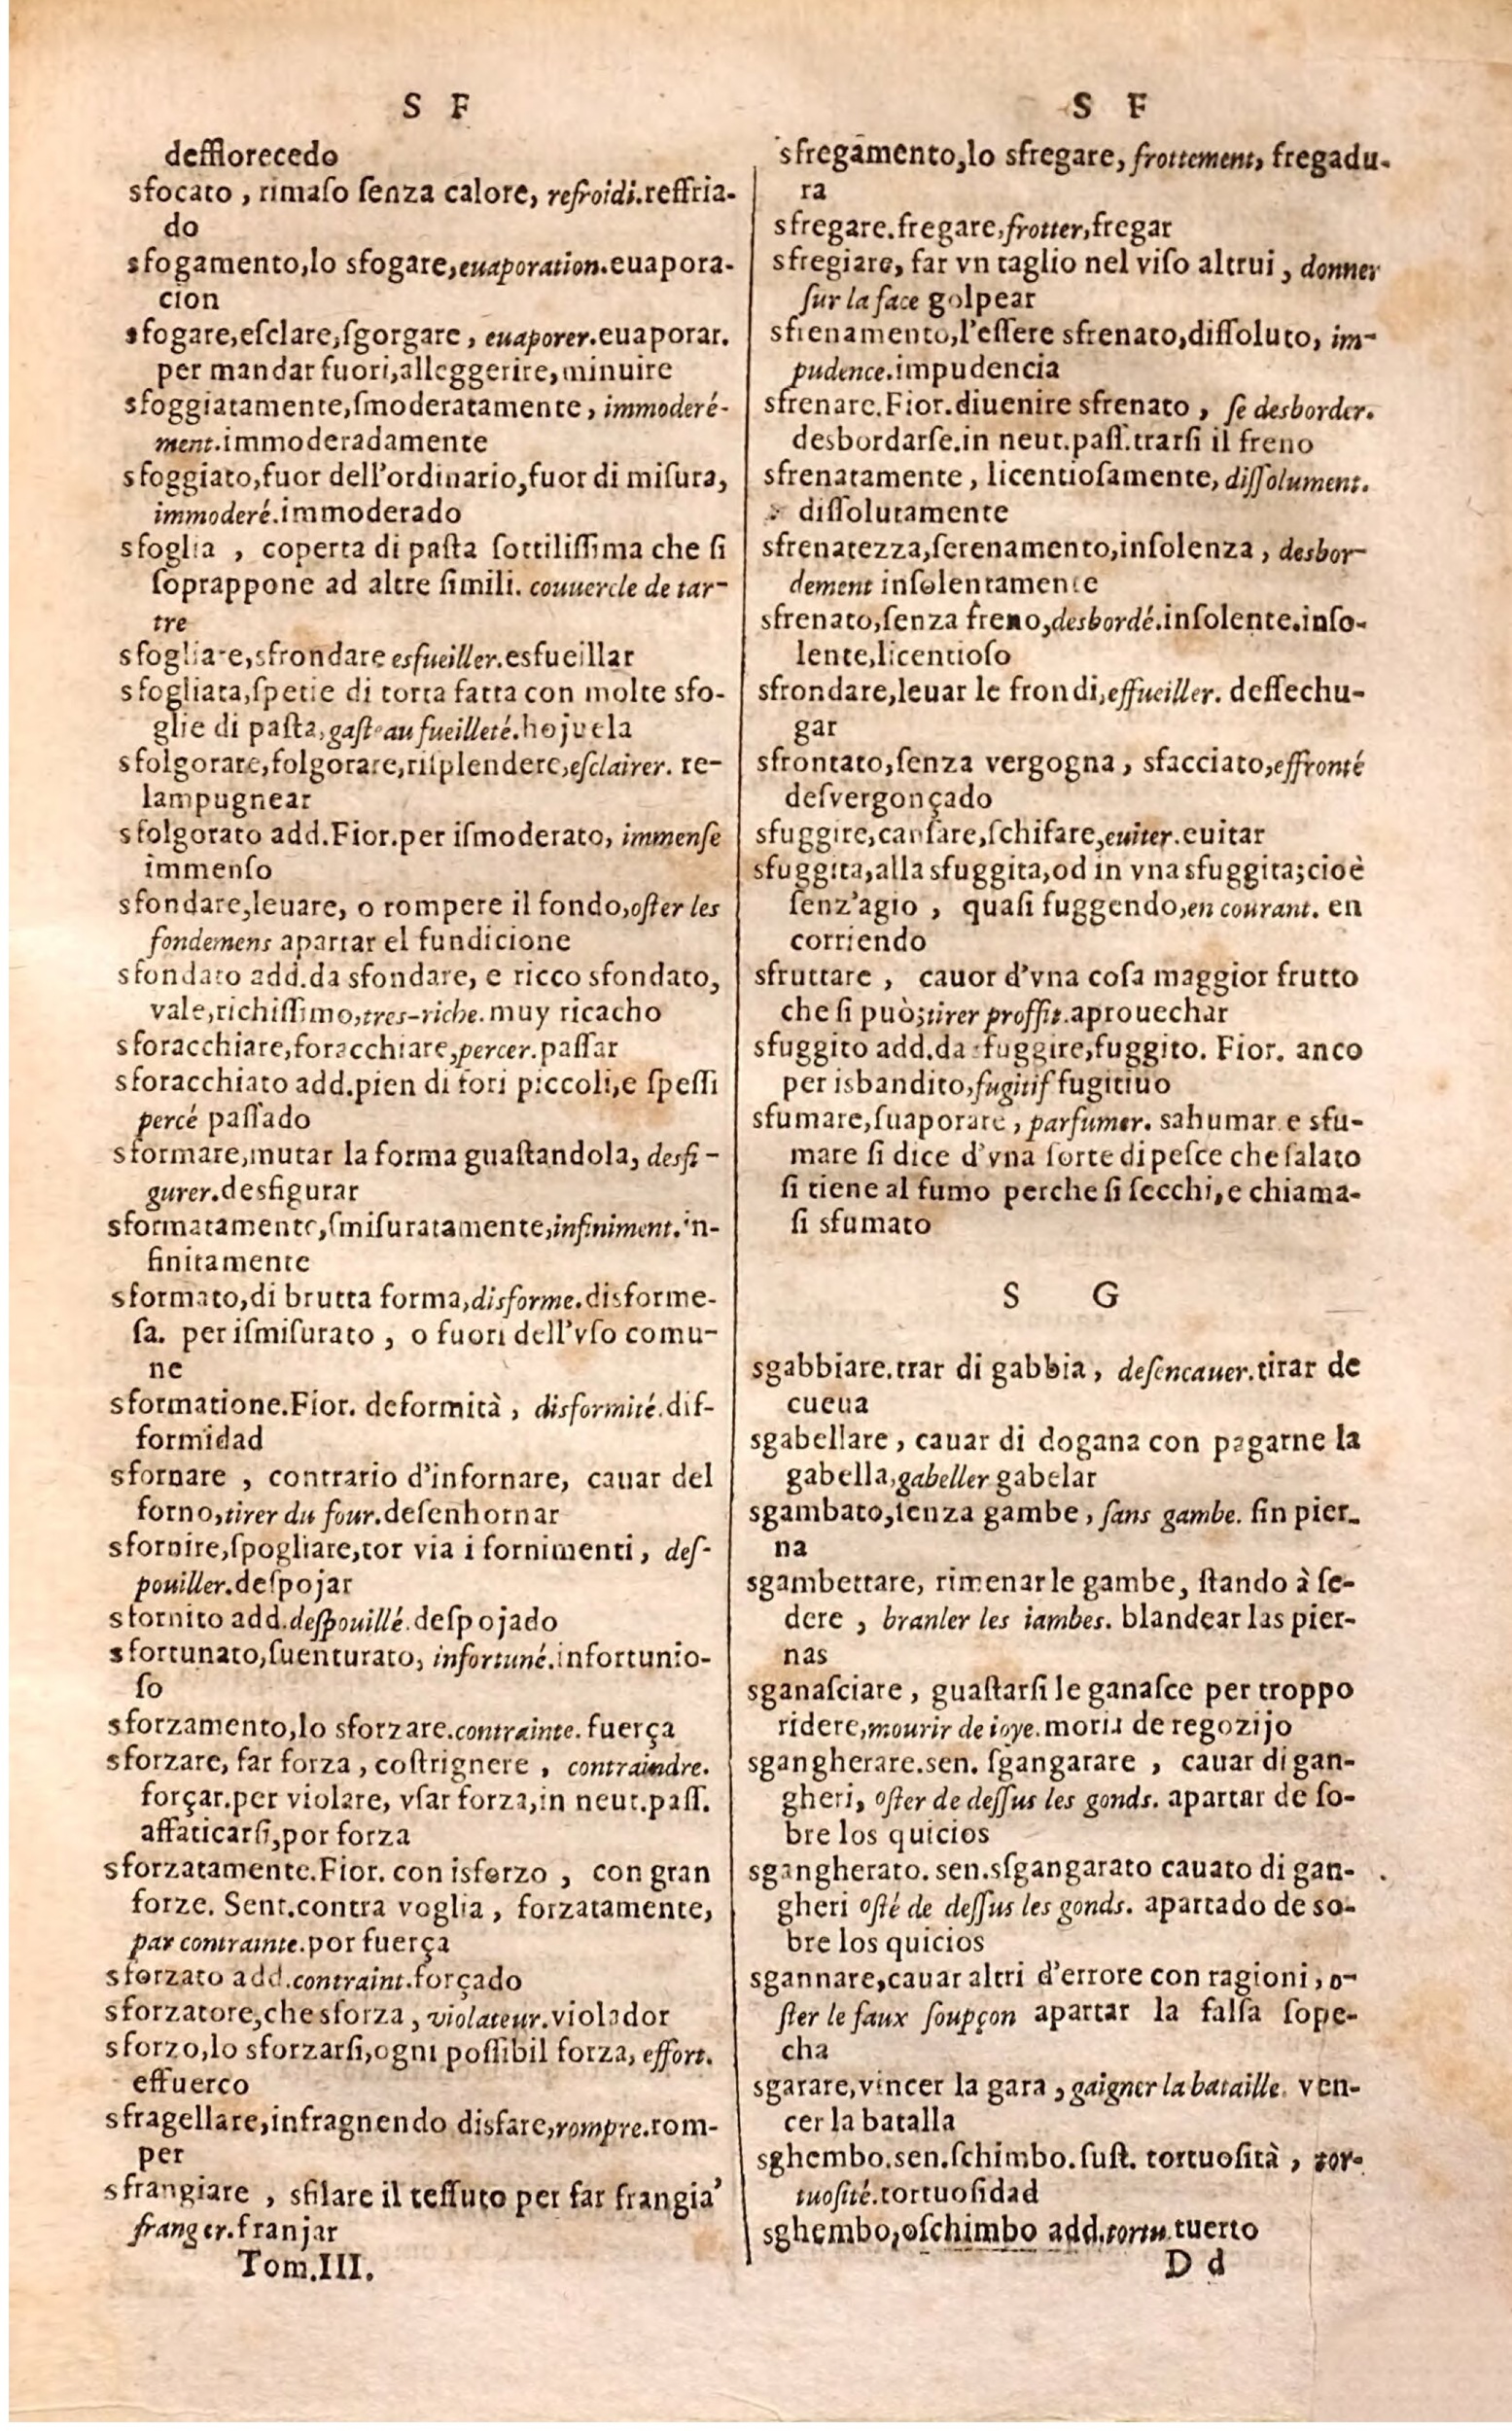 S F
deſſlorecedo
sfocato , rimaſo ſenza calore, refroidi.reffria-
do
sfogamento,lo sfogare,euaporation.euapora-
cion
sfogare,eſclare,ſgorgare , euaporer.euaporar.
per mandar fuori,alleggerire,minuire
sfoggiatamente,ſmoderatamente , immoderé-
ment.immoderadamente
sfoggiato,fuor dell'ordinario,fuor di miſura,
immoderé.immoderado
sfoglia , coperta di paſta ſottiliſſima che ſi
ſoprappone ad altre ſimili. couuercle de tar-
tre
sfogliare,sfrondare esfueiller.esfueillar
sfogliata,ſpetie di torta fatta con molte sfo-
glie di paſta,gaſteau fueilleté.hojuela
sfolgorare,folgorare,riſplendere,eſclairer. re-
lampugnear
sfolgorato add.Fior.per iſmoderato, immenſe
immenſo
sfondare,leuare, o rompere il fondo,oſter les
fondemens apartar el fundicione
sfondato add.da sfondare, e ricco sfondato,
vale,richiſſimo,tres-riche.muy ricacho
sforacchiare,foracchiare,percer.paſſar
sforacchiato add.pien di fori piccoli,e ſpeſſi
percé paſſado
sformare,mutar la forma guaſtandola, desfi-
gurer.desfigurar
sformatamente,ſmiſuratamente,infiniment.in-
finitamente
sformato,di brutta forma,disforme.disforme-
ſa. per iſmiſurato , o fuori dell'vſo comu-
ne
sformatione.Fior. deformità , disformité.diſ-
formidad
sfornare , contrario d'infornare, cauar del
forno,tirer du four.deſenhornar
sfornire,ſpogliare,tor via i fornimenti , deſ-
pouiller.deſpojar
sfornito add.deſpouillé.deſpojado
sfortunato,ſuenturato, infortuné.infortunio-
ſo
sforzamento,lo sforzare.contrainte. fuerça
sforzare, far forza , coſtrignere , contraindre.
forçar.per violare, vſar forza,in neut.paſſ.
affaticarſi,por forza
sforzatamente.Fior. con isforzo , con gran
forze. Sent.contra voglia , forzatamente,
par contrainte.por fuerça
sforzato add.contraint.forçado
sforzatore,che sforza , violateur.violador
sforzo,lo sforzarſi,ogni poſſibil forza, effort.
effuerco
sfragellare,infragnendo disfare,rompre.rom-
per
sfrangiare , sfilare il teſſuto per far frangia'
franger.franjar
Tom.III.
S F
sfregamento,lo sfregare, frottement, fregadu-
ra
sfregare.fregare,frotter,fregar
sfregiare, far vn taglio nel viſo altrui , donner
ſur la face golpear
sfrenamento,l'eſſere sfrenato,diſſoluto, im-
pudence.impudencia
sfrenare.Fior.diuenire sfrenato , ſe desborder.
desbordarſe.in neut.paſſ.trarſi il freno
sfrenatamente , licentioſamente, diſſolument.
diſſolutamente
sfrenatezza,ſerenamento,inſolenza , desbor-
dement inſolentamente
sfrenato,ſenza freno,desbordé.inſolente.inſo-
lente,licentioſo
sfrondare,leuar le frondi,effueiller. deſſechu-
gar
sfrontato,ſenza vergogna , sfacciato,effronté
deſvergonçado
sfuggire,canſare,ſchifare,euiter.euitar
sfuggita,alla sfuggita,od in vna sfuggita;cioè
ſenz'agio , quaſi fuggendo,en courant. en
corriendo
sfruttare , cauor d'vna coſa maggior frutto
che ſi può;tirer proffit.aprouechar
sfuggito add.da sfuggire,fuggito. Fior. anco
per isbandito,fugitif fugitiuo
sfumare,ſuaporare , parfumer. sahumar e sfu-
mare ſi dice d'vna ſorte di peſce che ſalato
ſi tiene al fumo perche ſi ſecchi,e chiama-
ſi sfumato
S G
sgabbiare.trar di gabbia , deſencauer.tirar de
cueua
sgabellare , cauar di dogana con pagarne la
gabella,gabeller gabelar
sgambato,ſenza gambe , ſans gambe. ſin pier-
na
sgambettare, rimenar le gambe, ſtando à ſe-
dere , branler les iambes. blandear las pier-
nas
sganaſciare , guaſtarſi le ganaſce per troppo
ridere,mourir de ioye.morir de regozijo
sgangherare.sen. ſgangarare , cauar di gan-
gheri, oſter de deſſus les gonds. apartar de ſo-
bre los quicios
sgangherato. sen.sſgangarato cauato di gan-
gheri oſté de deſſus les gonds. apartado de so-
bre los quicios
sgannare,cauar altri d'errore con ragioni , o-
ſter le faux ſoupçon apartar la falſa ſope-
cha
sgarare,vincer la gara , gaigner la bataille. ven-
cer la batalla
sghembo.sen.ſchimbo.ſuſt. tortuoſità , tor-
tuoſité.tortuoſidad
sghembo,oſchimbo add.tortu.tuerto
D d